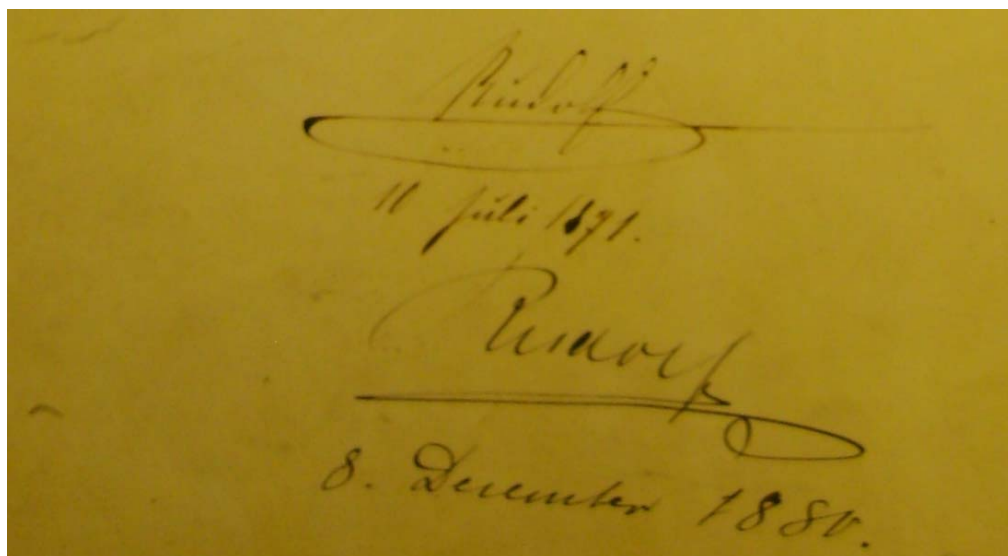 Rudolf
11 Juli 1871.
Rudolf
8. December 1880.